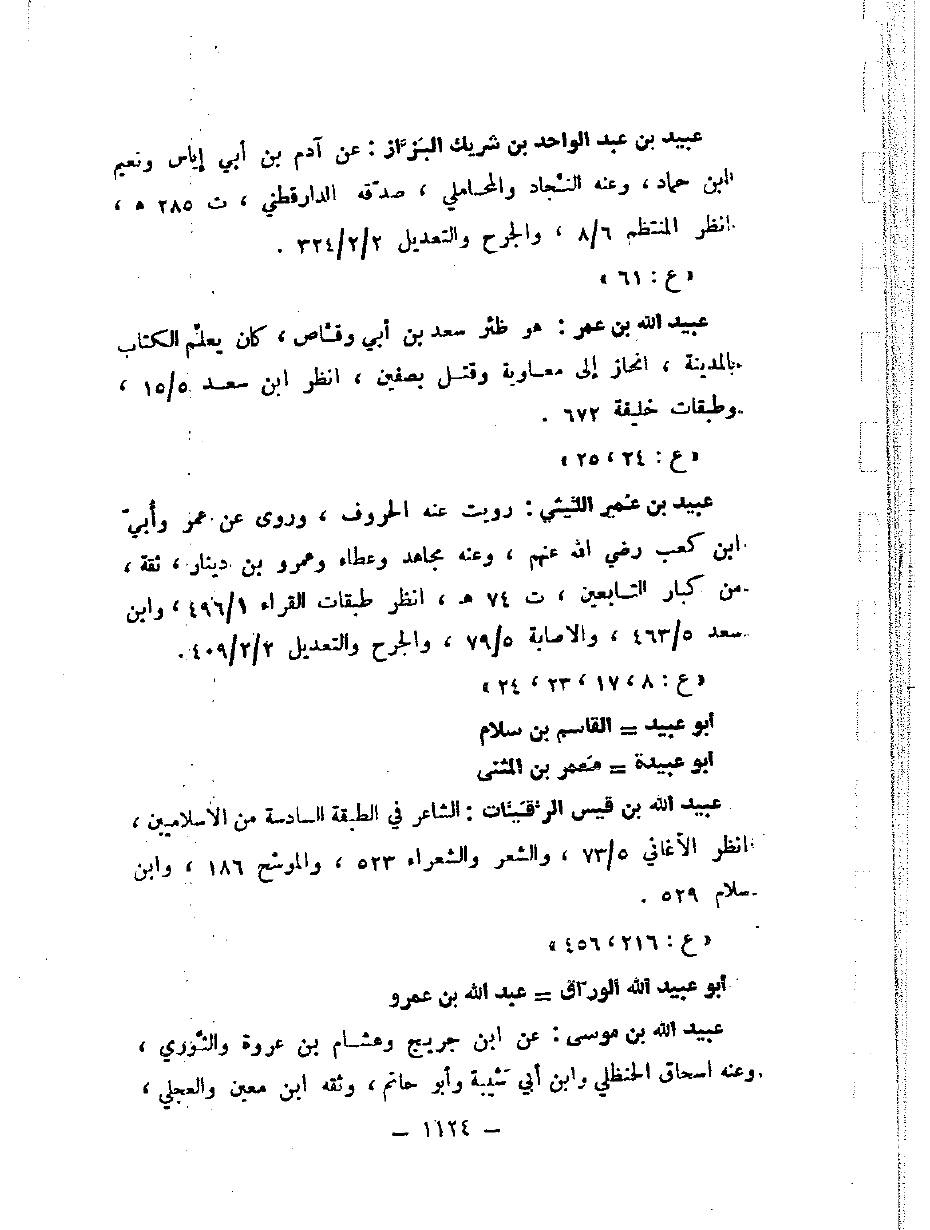 عبيد بن عبد الواحد بن شريك البَزّاز : عن آدم بن أبي إياس ونعيم
ابن حماد ، وعنه النّجاد والمحاملي ، صدّقه الدارقطني ، ت ٢٨٥ ه ،
انظر المنتظم ٨/٦ ، والجرح والتعديل ٣٢٤/٢/٢ .
« ع : ٦١ »
عبيد الله بن عمر : هو ظئر سعد بن أبي وقّاص ، كان يعلّم الكتاب
بالمدينة ، انحاز إلى معاوية وقتل بصفين ، انظر ابن سعد ١٥/٥ ،
وطبقات خليفة ٦٧٢ .
« ع : ٢٤ ، ٢٥ »
عبيد بن عُمير اللّيثي : رويت عنه الحروف ، وروى عن عمر وأُبيّ
ابن كعب رضي الله عنهم ، وعنه مجاهد وعطاء وعمرو بن دينار ، ثقة ،
من كبار التابعين ، ت ٧٤ هـ ، انظر طبقات القراء ٤٩٦/١ ، وابن
سعد ٤٦٣/٥ ، والاصابة ٧٩/٥ ، والجرح والتعديل ٤٠٩/٢/٢ .
« ع : ٨ ، ١٧ ، ٢٣ ، ٢٤ »
أبو عبيد = القاسم بن سلام
أبو عبيدة = مَعمر بن المثنى
عبيد الله بن قيس الرُّقَيّات : الشاعر في الطبقة السادسة من الاسلاميين ،
انظر الأغاني ٧٣/٥ ، والشعر والشعراء ٥٢٣ ، والموشح ١٨٦ ، وابن
سلام ٥٢٩ .
« ع : ٢١٦ ، ٤٥٦ »
أبو عبيد الله الورّاق = عبد الله بن عمرو
عبيد الله بن موسى : عن ابن جريج وهشام بن عروة والثّوري ،
وعنه اسحاق الحنظلي وابن أبي شَيبة وأبو حاتم ، وثقه ابن معين والعجلي ،
— ١١٢٤ —